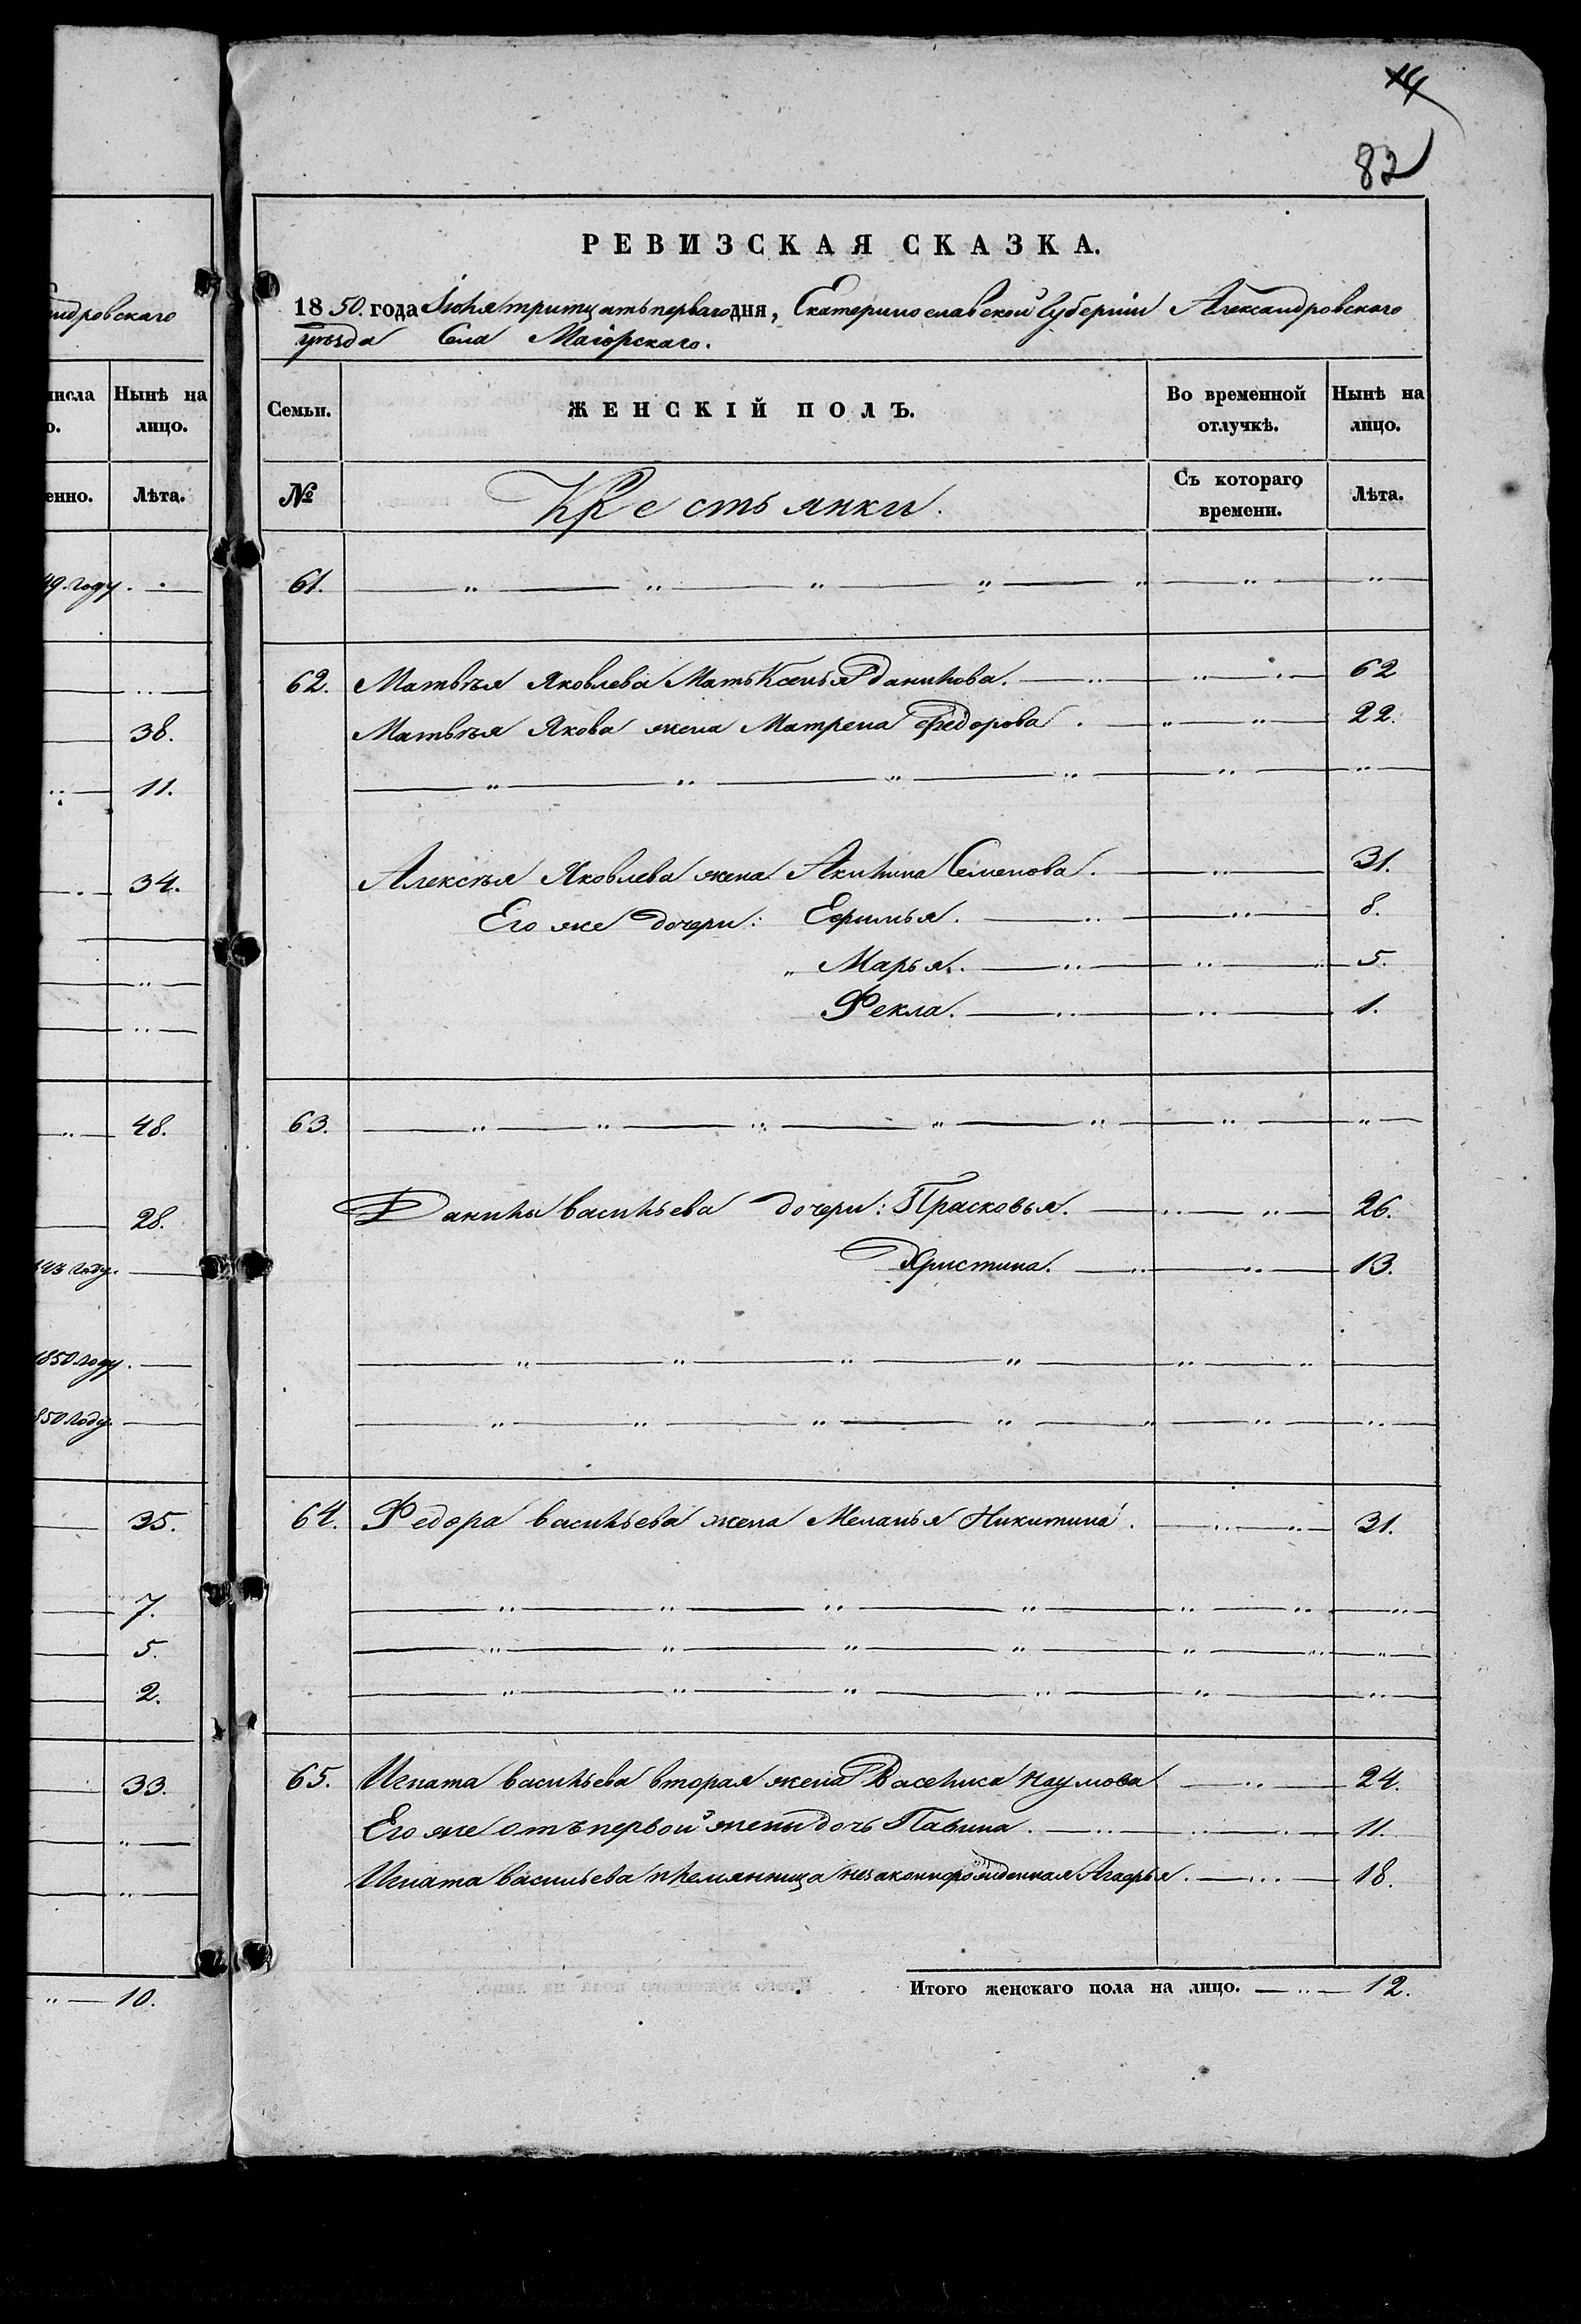 14
82
ндровскаго
числа Нынѣ на
о. лицо.
енно. Лѣта.
49. году.
38.
11.
34.
48.
28.
143 году.
1850 году.
850 году.
35.
7.
5.
2.
33.
10.
РЕВИЗСКАЯ СКАЗКА.
1850. года Іюля тритцать перваго дня, Екатеринославской Губерніи Александровскаго
уѣзда Села Маіорскаго.
Семьи. ЖЕНСКІЙ ПОЛЪ. Во временной отлучкѣ. Нынѣ на лицо.
№ Крестьянки. Съ котораго времени. Лѣта.
61.
62. Матвѣя Яковлева Мать Ксенья Данилова. 62
Матвѣя Якова жена Матрена Федорова. 22.
Алексѣя Яковлева жена Акилина Семенова. 31.
Его же дочери: Ефимья. 8.
Марья. 5.
Фекла. 1.
63.
Данилы Васильева дочери: Прасковья. 26.
Христина. 13.
64. Федора Васильева жена Меланья Никитина. 31.
65. Игната Васильева вторая жена Васелиса Наумова 24.
Его же отъ первой жены дочь Павлина. 11.
Игната Васильева племянница незаконнорожденная Агафья. 18.
Итого женскаго пола на лицо. 12.